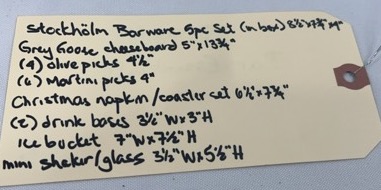 Stockhölm Barware 5pc Set (in box) 8½"x7¾"x4"
Grey Goose cheeseboard 5"x13¾"
(4) olive picks 4½"
(6) Martini picks 4"
Christmas napkin/coaster set 6½"x7¾"
(2) drink bases 3½"Wx3"H
ice bucket 7"Wx7½"H
mini sheker/glass 3½"Wx5½"H